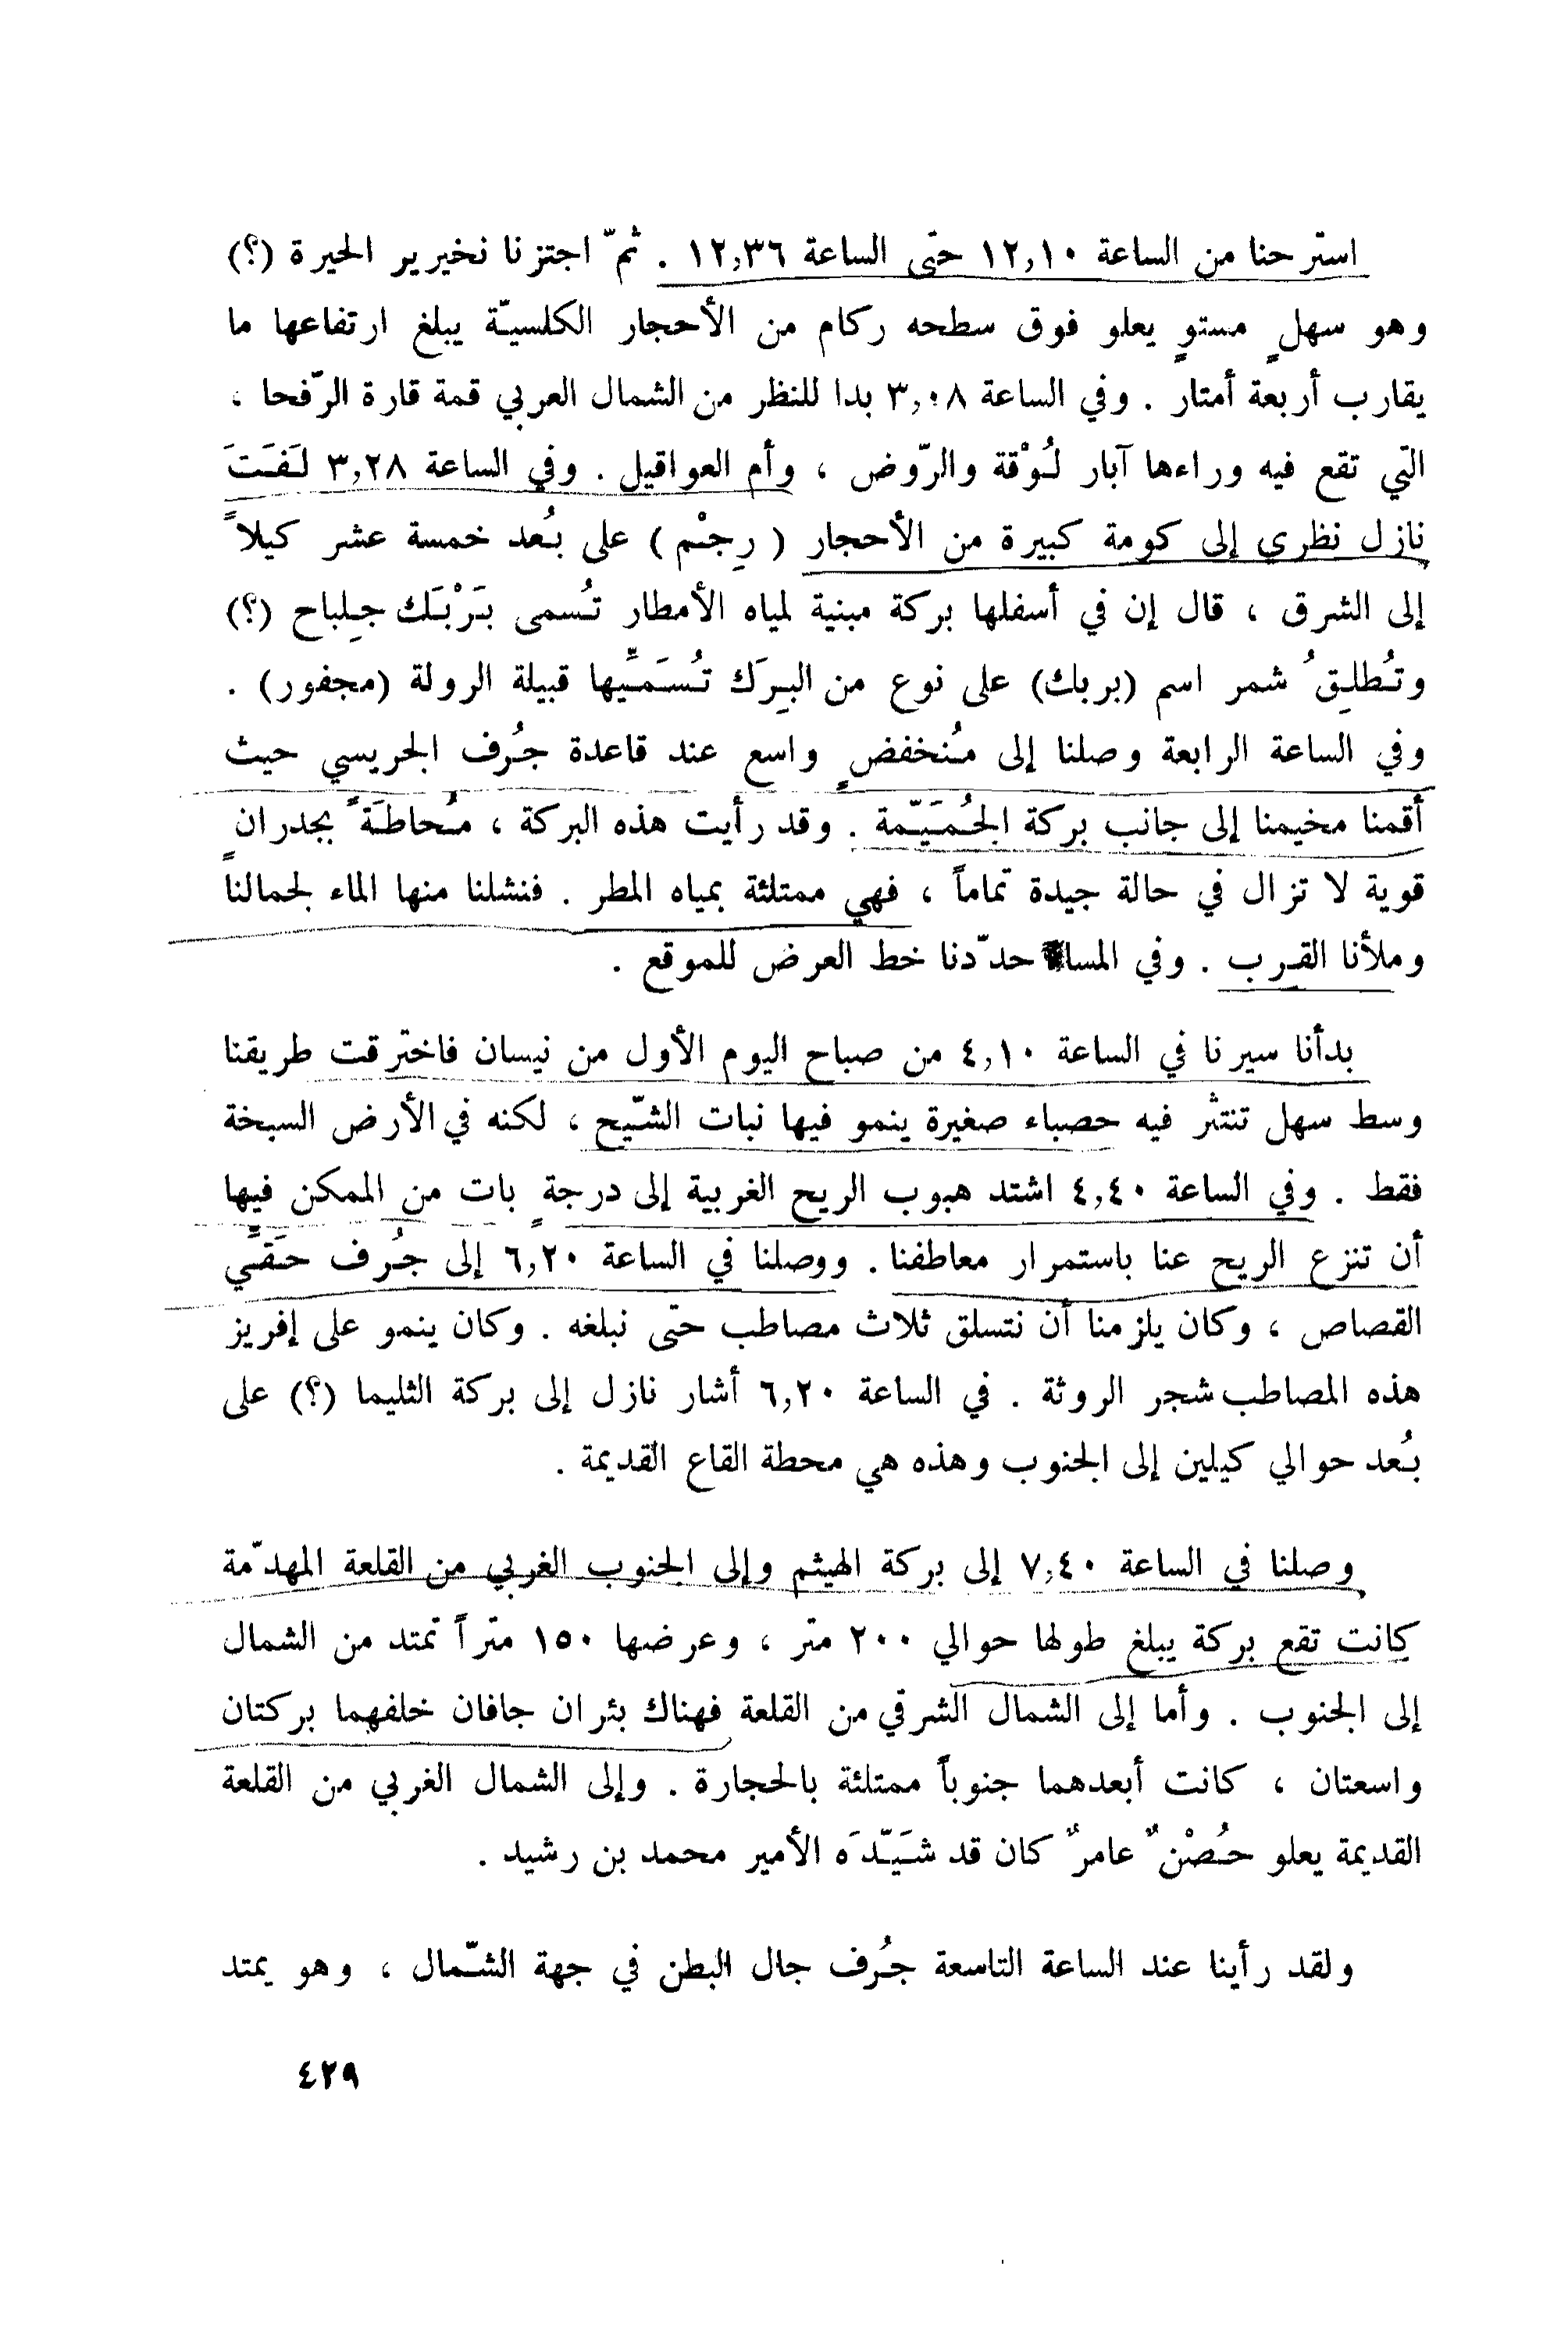 استرحنا من الساعة ١٢,١٠ حتى الساعة ١٢,٣٦ . ثمّ اجتزنا نخيرير الحيرة (؟)
وهو سهلٍ مستوٍ يعلو فوق سطحه ركام من الأحجار الكلسيّة يبلغ ارتفاعها ما
يقارب أربعة أمتار . وفي الساعة ٣,٠٨ بدا للنظر من الشمال العربي قمة قارة الرّفحا ،
التي تقع فيه وراءها آبار لُوْقة والرّوض ، وأم العواقيل . وفي الساعة ٣,٢٨ لَفَتَ
نازل نظري إلى كومة كبيرة من الأحجار ( رِجْم ) على بُعد خمسة عشر كيلاً
إلى الشرق ، قال إن في أسفلها بركة مبنية لمياه الأمطار تُسمى بَرْبَك جِلباح (؟)
وتُطلِقُ شمر اسم (بربك) على نوع من البِرَك تُسَمِّيها قبيلة الرولة (مجفور) .
وفي الساعة الرابعة وصلنا إلى مُنخفضٍ واسع عند قاعدة جُرف الجريسي حيث
أقمنا مخيمنا إلى جانب بركة الجُمَيّمة . وقد رأيت هذه البركة ، مُحاطَةً بجدرانٍ
قوية لا تزال في حالة جيدة تماماً ، فهي ممتلئة بمياه المطر . فنشلنا منها الماء لجمالنا
وملأنا القِرب . وفي المساء حدّدنا خط العرض للموقع .
بدأنا سيرنا في الساعة ٤,١٠ من صباح اليوم الأول من نيسان فاخترقت طريقنا
وسط سهل تنتثر فيه حصباء صغيرة ينمو فيها نبات الشّيح ، لكنه في الأرض السبخة
فقط . وفي الساعة ٤,٤٠ اشتد هبوب الريح الغربية إلى درجةٍ بات من الممكن فيها
أن تنزع الريح عنا باستمرار معاطفنا . ووصلنا في الساعة ٦,٢٠ إلى جُرف حَقيِّ
القصاص ، وكان يلزمنا أن نتسلق ثلاث مصاطب حتى نبلغه . وكان ينمو على إفريز
هذه المصاطب شجر الروثة . في الساعة ٦,٢٠ أشار نازل إلى بركة الثليما (؟) على
بُعد حوالي كيلين إلى الجنوب وهذه هي محطة القاع القديمة .
وصلنا في الساعة ٧,٤٠ إلى بركة الهيثم وإلى الجنوب الغربي من القلعة المهدّمة
كانت تقع بركة يبلغ طولها حوالي ٢٠٠ متر ، وعرضها ١٥٠ متراً تمتد من الشمال
إلى الجنوب . وأما إلى الشمال الشرقي من القلعة فهناك بئران جافان خلفهما بركتان
واسعتان ، كانت أبعدهما جنوباً ممتلئة بالحجارة . وإلى الشمال الغربي من القلعة
القديمة يعلو حُصْنٌ عامرٌ كان قد شَيّدَه الأمير محمد بن رشيد .
ولقد رأينا عند الساعة التاسعة جُرف جال البطن في جهة الشّمال ، وهو يمتد
٤٢٩